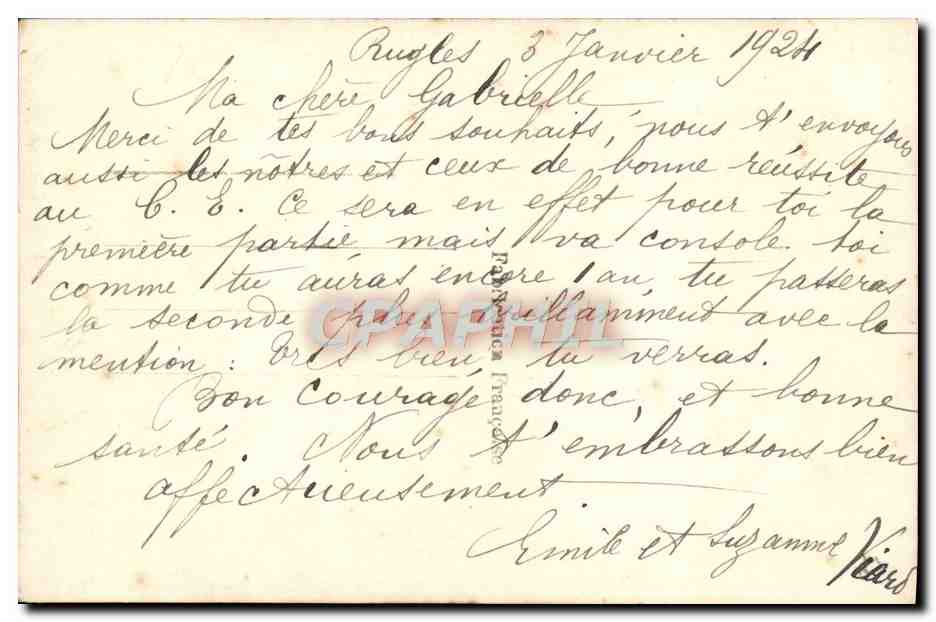 Rugles 3 Janvier 1924
Ma chère Gabrielle
Merci de tes bons souhaits, nous t'envoyons
aussi les nôtres et ceux de bonne réussite
au C. E. Ce sera en effet pour toi la
première partie mais va console toi
comme tu auras encore 1 an, tu passeras
la seconde plus brillamment avec la
mention : très bien, tu verras.
Bon courage donc, et bonne
santé. Nous t'embrassons bien
affectueusement
Emile et Suzanne Viard
Fabrication Française
CPAPHIL